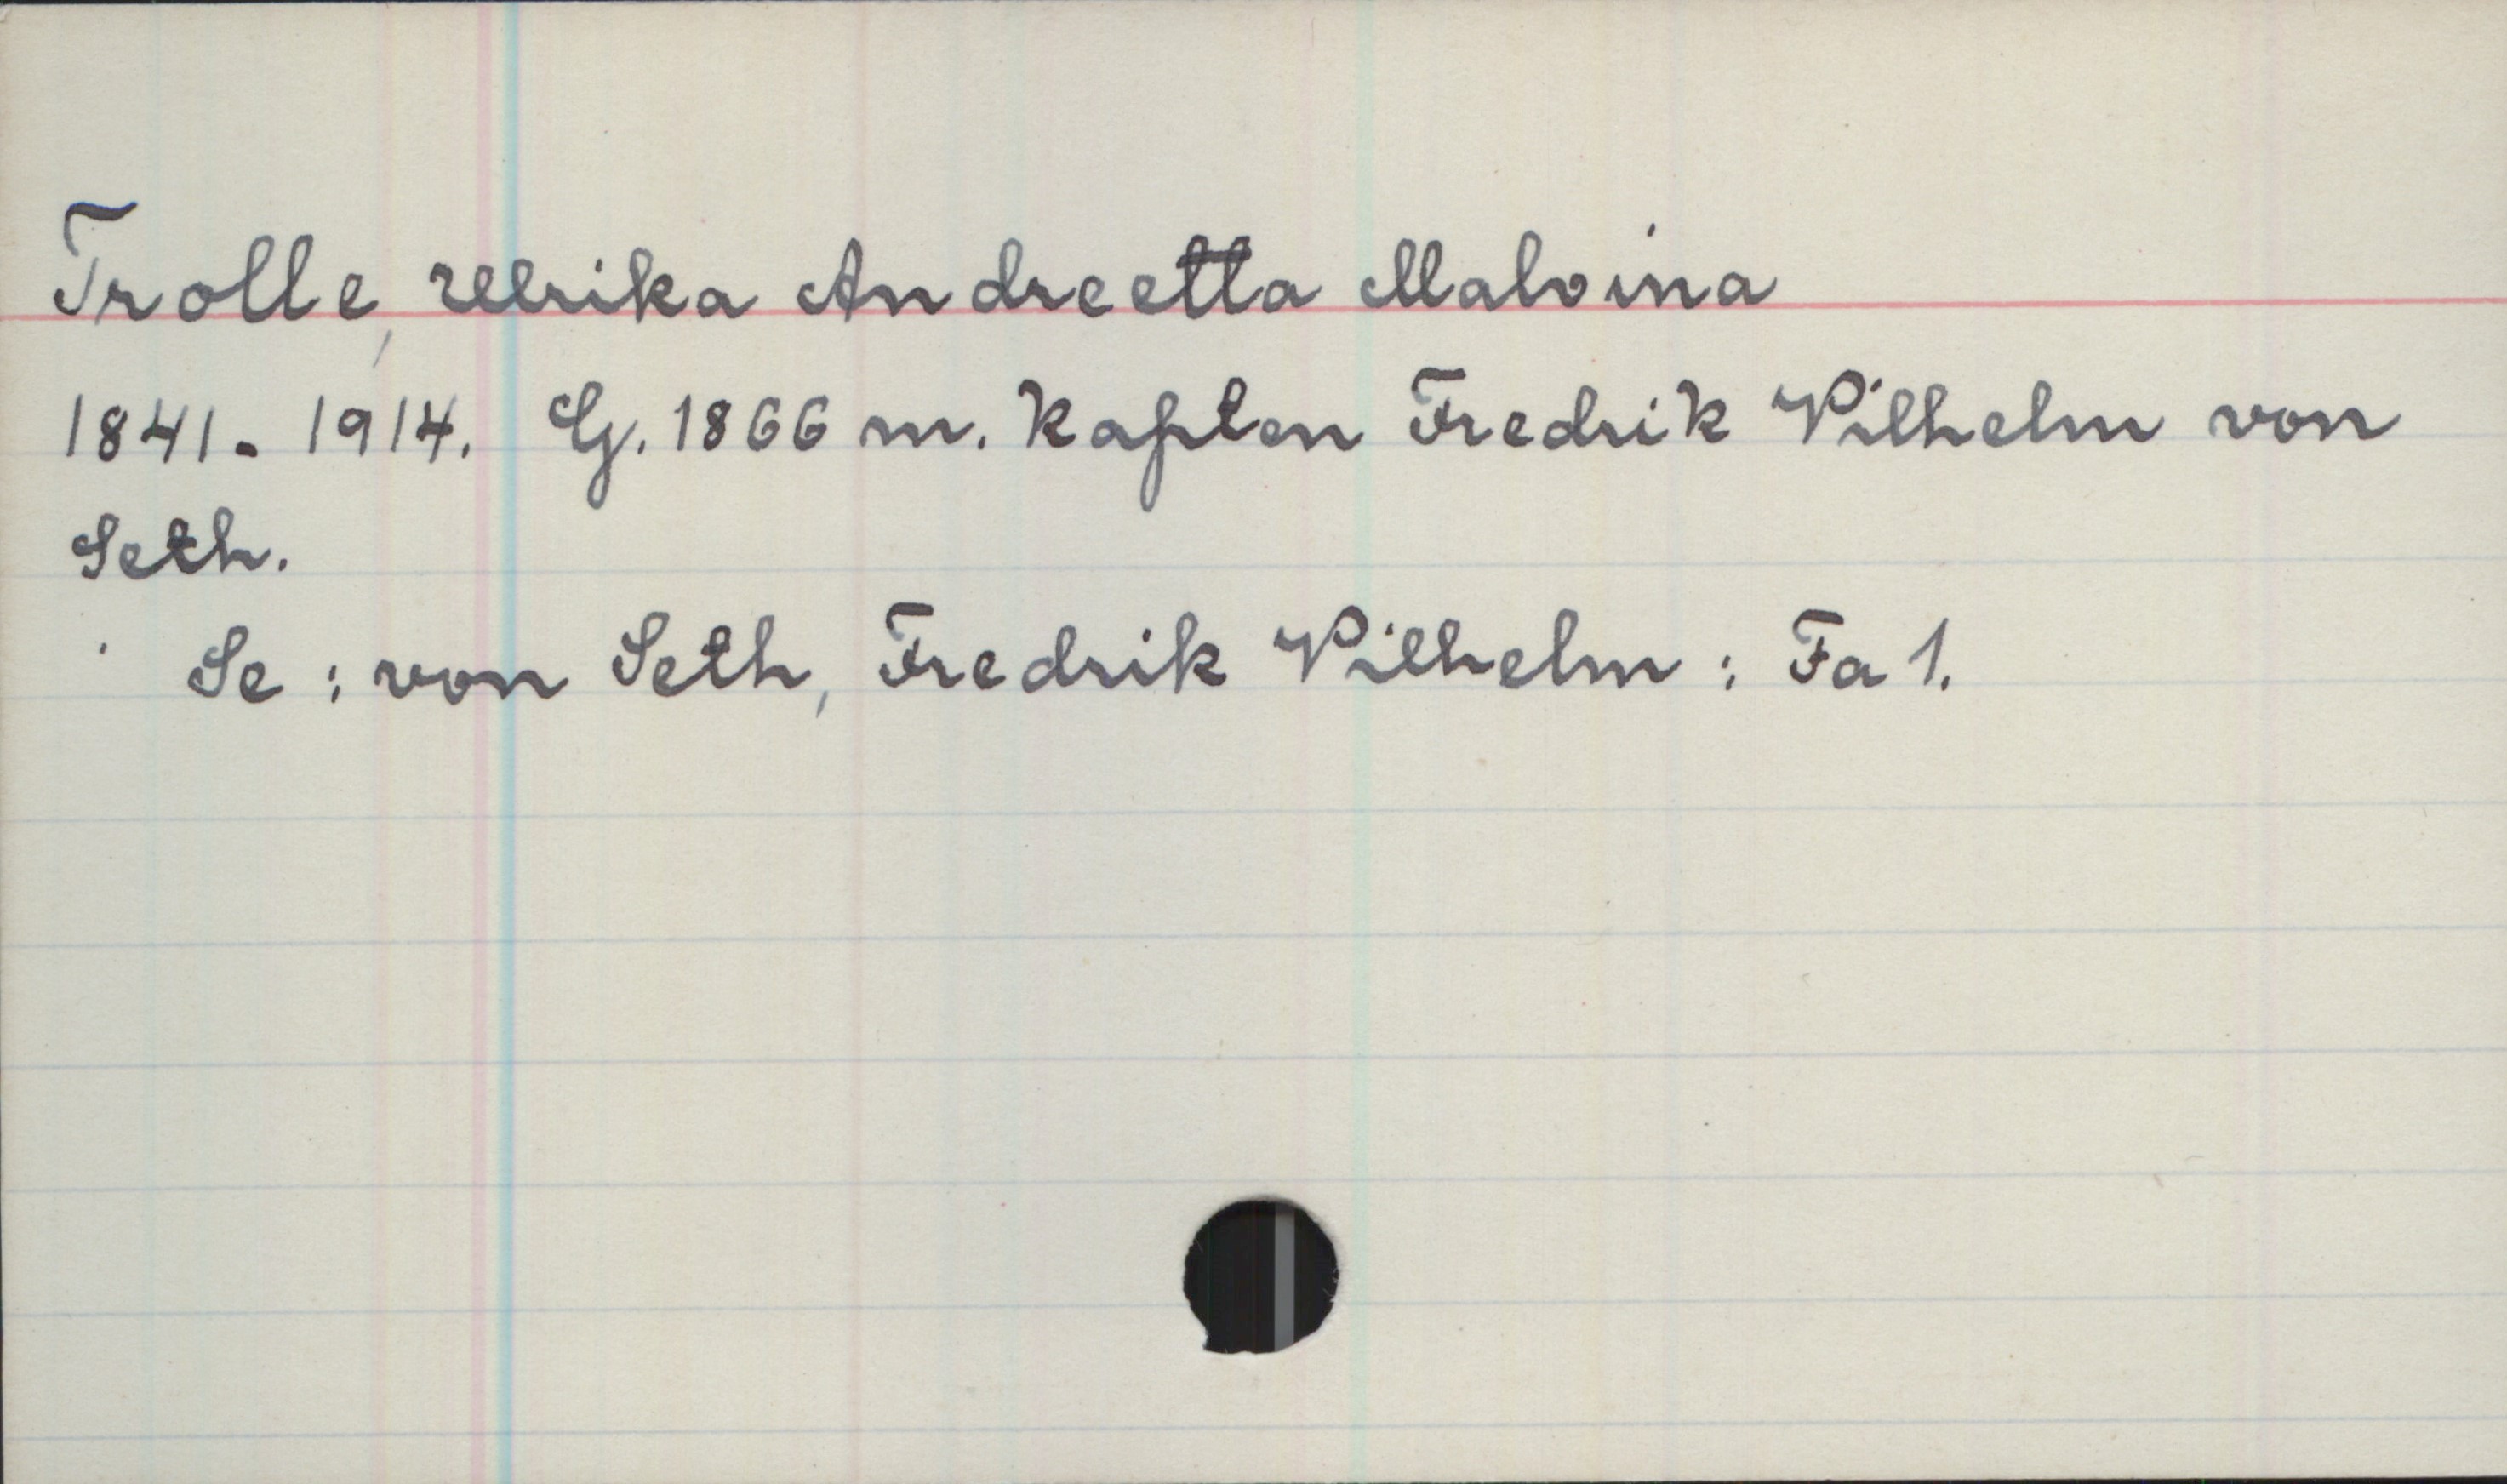 Trolle, Ulrika Andreetta Malvina
1841-1914. G. 1866 m. Kapten Fredrik Vilhelm von
Seth.
Se: von Seth, Fredrik Vilhelm: Fa 1.